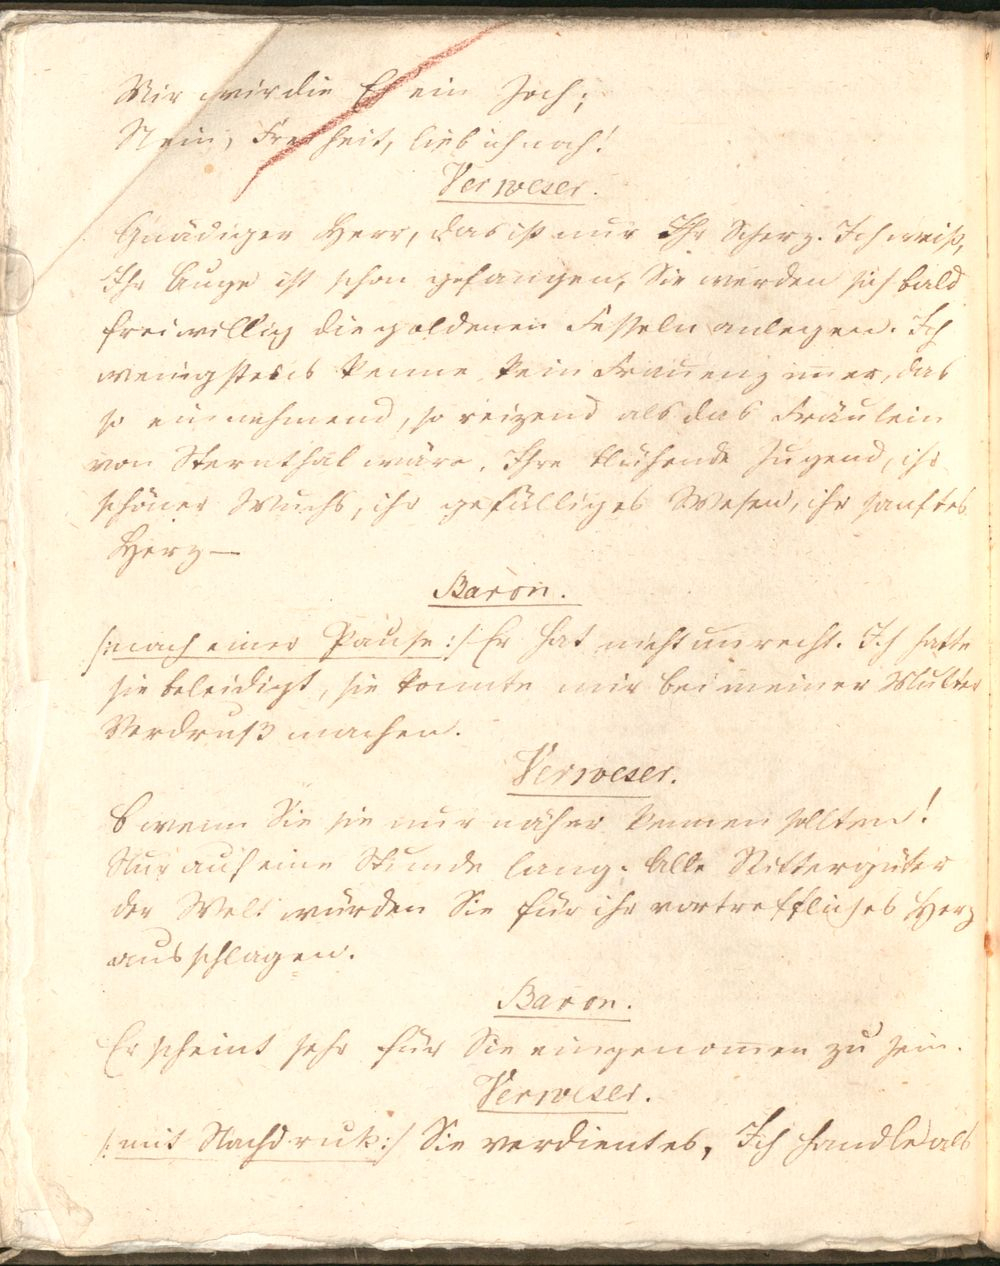 Mir wird die Eh ein Joch;
Nein, Freiheit, lieb ich noch!
Verweser.
Gnädiger Herr, das ist nur Ihr Scherz. Ich weiß,
Ihr Auge ist schon gefangen, Sie werden sich bald
freiwillig die goldenen Fesseln anlegen. Ich
wenigstens kenne kein Frauenzimmer, das
so einnehmend, so reizend als das Fräulein
von Sternthal wäre. Ihre blühende Jugend, ihr
schöner Wuchs, ihr gefälliges Wesen, ihr sanftes
Herz —
Baron.
/: nach einer Pause :/ Er hat nicht unrecht. Ich hatte
sie beleidigt, sie konnte mir bei meiner Mutter
Verdruß machen.
Verweser.
O wenn Sie sie nur näher kennen sollten!
Nur auf eine Stunde lang. Alle Rittergüter
der Welt würden Sie für ihr vortreffliches Herz
ausschlagen.
Baron.
Er scheint sehr für Sie eingenomen zu sein.
Verweser.
/: mit Nachdruk :/ Sie verdient es, Ich handle als